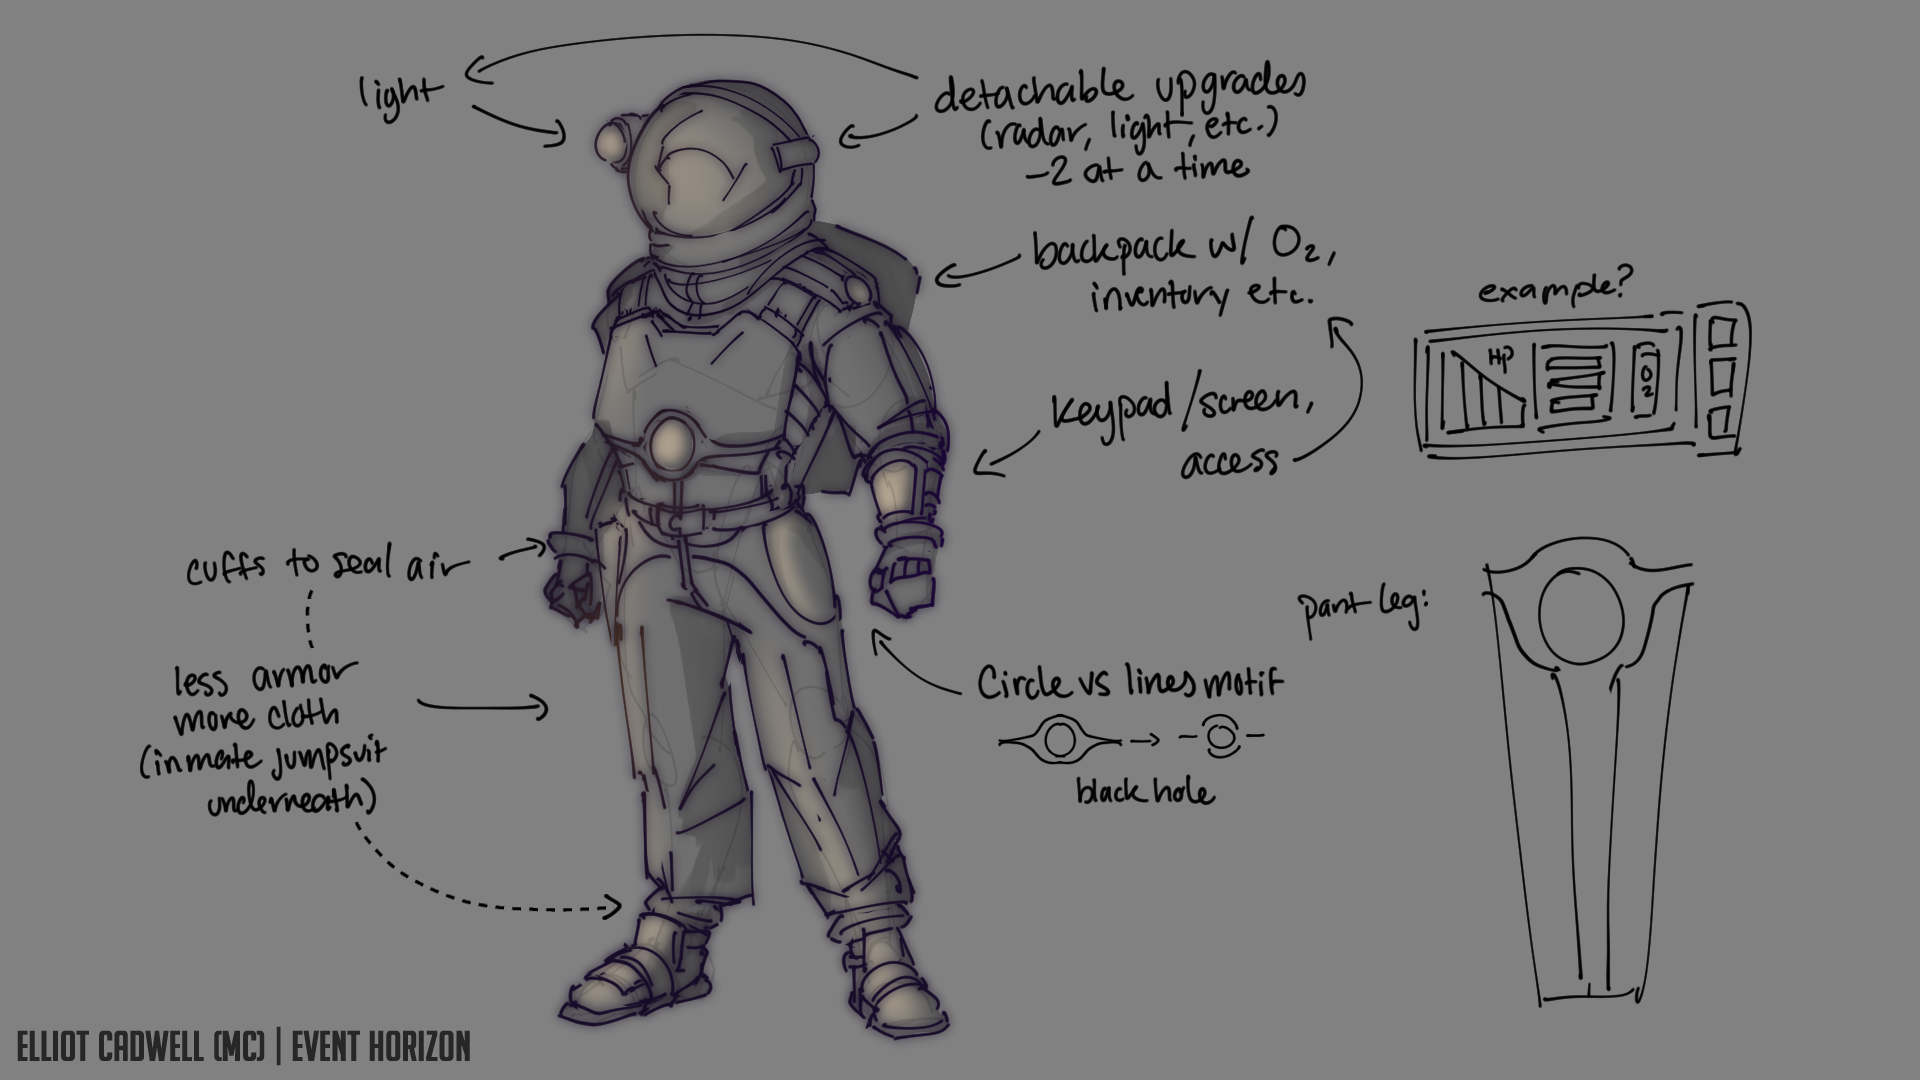 light
detachable upgrades
(radar, light, etc.)
-2 at a time
backpack w/ O2,
inventory etc.
example?
HP
O2
keypad/screen,
access
cuffs to seal air
less armor
more cloth
(inmate jumpsuit
underneath)
Circle vs lines motif
black hole
pant leg:
ELLIOT CADWELL (MC) | EVENT HORIZON